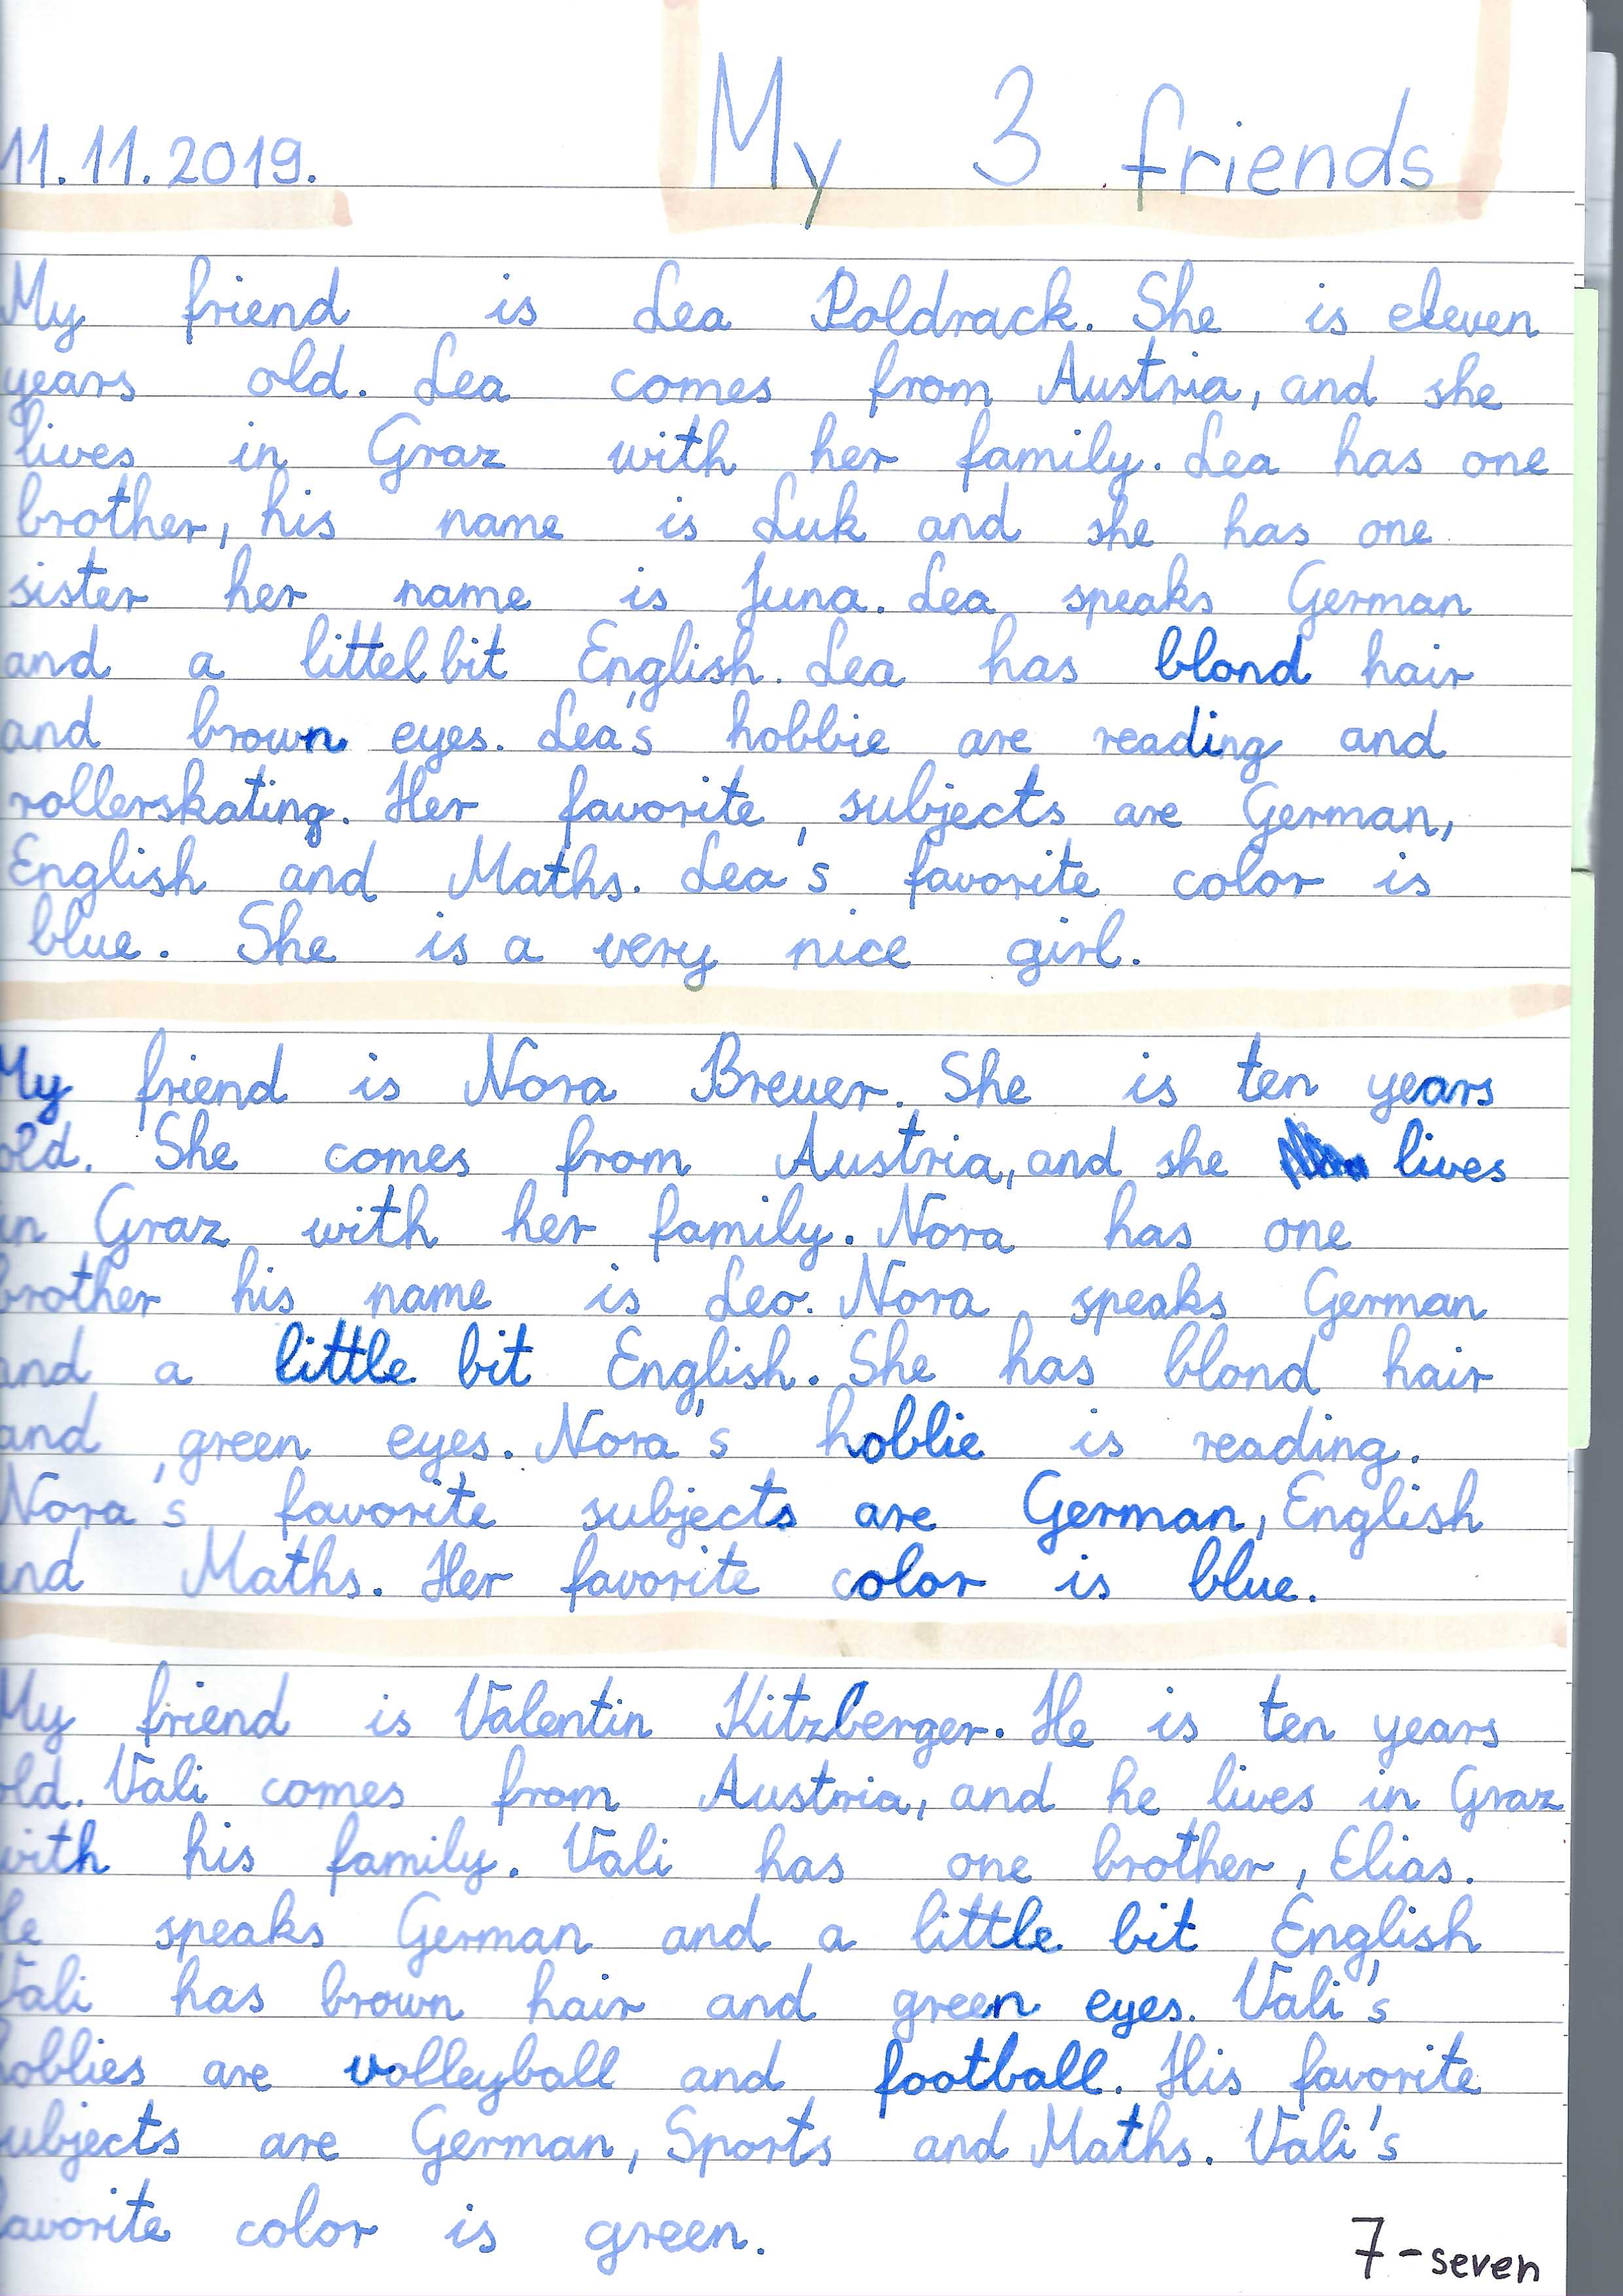 11.11.2019. My 3 friends
My friend is Lea Poldrack. She is eleven
years old. Lea comes from Austria, and she
lives in Graz with her family. Lea has one
brother, his name is Luk and she has one
sister her name is Juna. Lea speaks German
and a littel bit English. Lea has blond hair
and brown eyes. Lea's hobbie are reading and
rollerskating. Her favorite subjects are German,
English and Maths. Lea's favorite color is
blue. She is a very nice girl.
My friend is Nora Breuer. She is ten years
old. She comes from Austria, and she lives
in Graz with her family. Nora has one
brother his name is Leo. Nora speaks German
and a little bit English. She has blond hair
and green eyes. Nora's hobbie is reading.
Nora's favorite subjects are German, English
and Maths. Her favorite color is blue.
My friend is Valentin Kitzberger. He is ten years
old. Vali comes from Austria, and he lives in Graz
with his family. Vali has one brother, Elias.
He speaks German and a little bit English
Vali has brown hair and green eyes. Vali's
hobbies are volleyball and football. His favorite
subjects are German, Sports and Maths. Vali's
favorite color is green.
7-seven